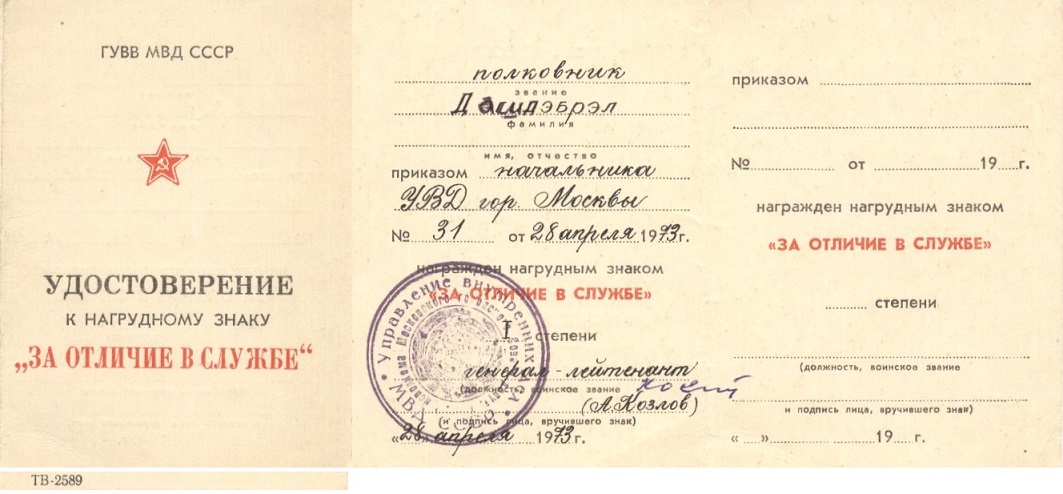 ГУВВ МВД СССР
УДОСТОВЕРЕНИЕ
К НАГРУДНОМУ ЗНАКУ
„ЗА ОТЛИЧИЕ В СЛУЖБЕ“
ТВ-2589
полковник
звание
Дашдэбрэл
фамилия
имя, отчество
приказом начальника
УВД гор. Москвы
№ 31 от 28 апреля 1973 г.
награжден нагрудным знаком
«ЗА ОТЛИЧИЕ В СЛУЖБЕ»
I степени
генерал-лейтенант
(должность, воинское звание
(А. Козлов)
и подпись лица, вручившего знак)
«28» апреля 1973 г.
Управление внутренних дел
МВД СССР
приказом
№ от 19 г.
награжден нагрудным знаком
«ЗА ОТЛИЧИЕ В СЛУЖБЕ»
степени
(должность, воинское звание
и подпись лица, вручившего знак)
« » 19 г.